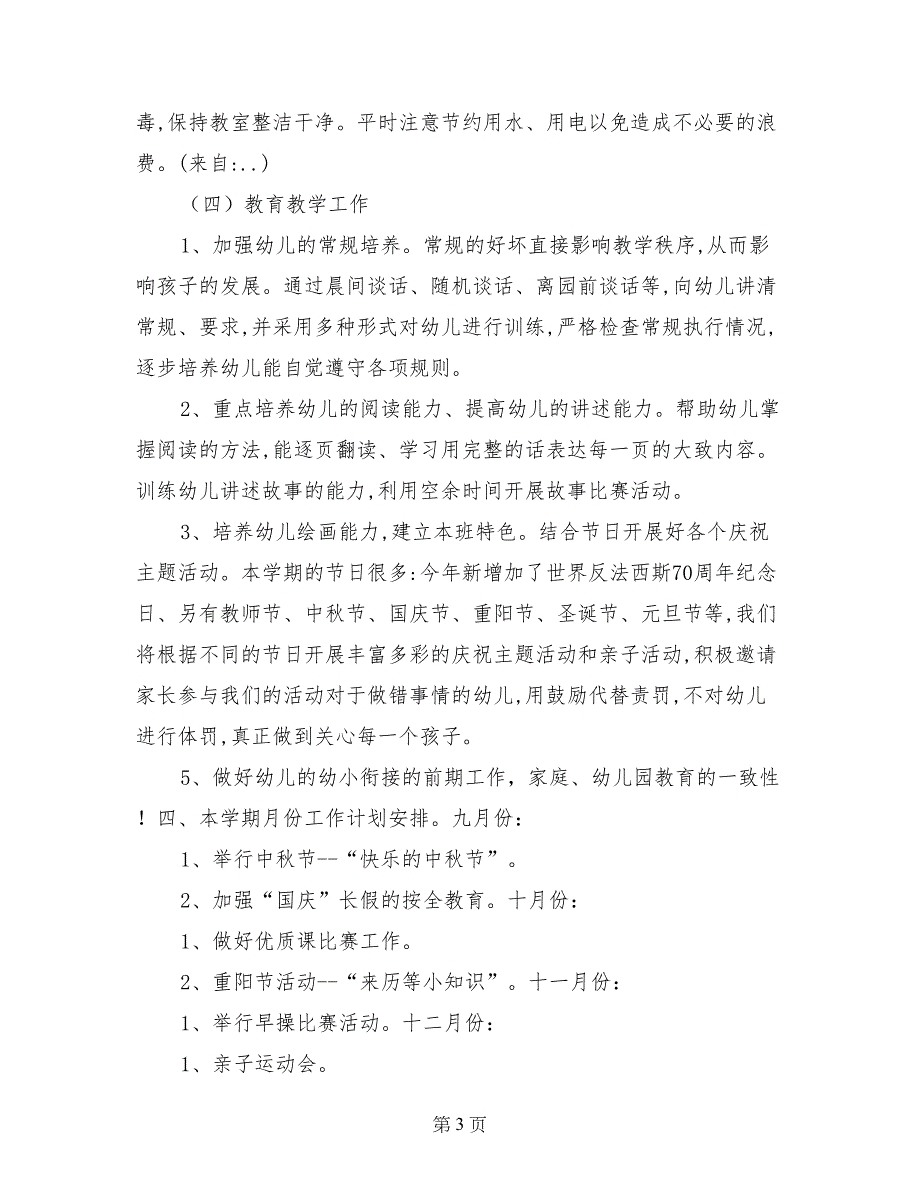 毒,保持教室整洁干净。平时注意节约用水、用电以免造成不必要的浪
费。(来自:..)
（四）教育教学工作
1、加强幼儿的常规培养。常规的好坏直接影响教学秩序,从而影
响孩子的发展。通过晨间谈话、随机谈话、离园前谈话等,向幼儿讲清
常规、要求,并采用多种形式对幼儿进行训练,严格检查常规执行情况,
逐步培养幼儿能自觉遵守各项规则。
2、重点培养幼儿的阅读能力、提高幼儿的讲述能力。帮助幼儿掌
握阅读的方法,能逐页翻读、学习用完整的话表达每一页的大致内容。
训练幼儿讲述故事的能力,利用空余时间开展故事比赛活动。
3、培养幼儿绘画能力,建立本班特色。结合节日开展好各个庆祝
主题活动。本学期的节日很多:今年新增加了世界反法西斯70周年纪念
日、另有教师节、中秋节、国庆节、重阳节、圣诞节、元旦节等,我们
将根据不同的节日开展丰富多彩的庆祝主题活动和亲子活动,积极邀请
家长参与我们的活动对于做错事情的幼儿,用鼓励代替责罚,不对幼儿
进行体罚,真正做到关心每一个孩子。
5、做好幼儿的幼小衔接的前期工作，家庭、幼儿园教育的一致性
！四、本学期月份工作计划安排。九月份：
1、举行中秋节--“快乐的中秋节”。
2、加强“国庆”长假的按全教育。十月份：
1、做好优质课比赛工作。
2、重阳节活动--“来历等小知识”。十一月份：
1、举行早操比赛活动。十二月份：
1、亲子运动会。
第 3 页